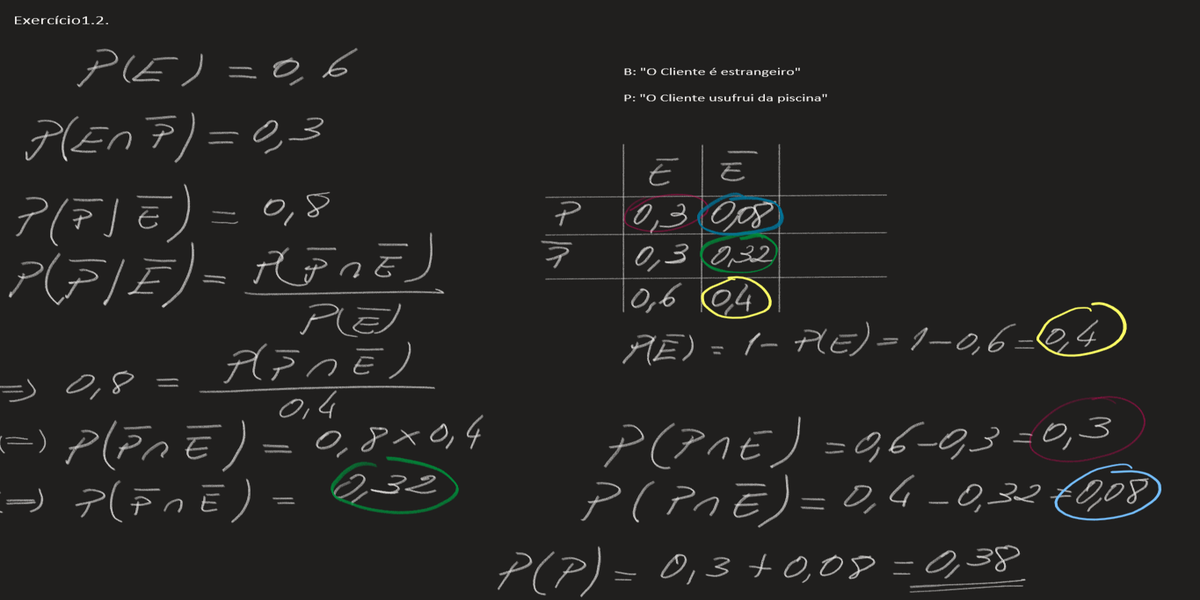 Exercício1.2.
P(E) = 0,6
P(E∩P̅) = 0,3
P(P̅|E̅) = 0,8
P(P̅|E̅) = P(P̅∩E̅) / P(E̅)
=> 0,8 = P(P̅∩E̅) / 0,4
(=) P(P̅∩E̅) = 0,8×0,4
(=) P(P̅∩E̅) = 0,32
B: "O Cliente é estrangeiro"
P: "O Cliente usufrui da piscina"
E E̅
P 0,3 0,08
P̅ 0,3 0,32
0,6 0,4
P(E̅) = 1 - P(E) = 1-0,6 = 0,4
P(P∩E) = 0,6-0,3 = 0,3
P(P∩E̅) = 0,4-0,32 = 0,08
P(P) = 0,3 + 0,08 = 0,38